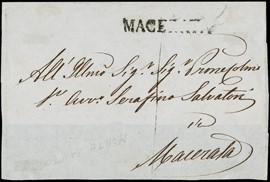 MACERATA
All' Illmo Sigr. Sigr. Pronẽ Colmo
Avvo. Serafino Salvatori
in
Macerata